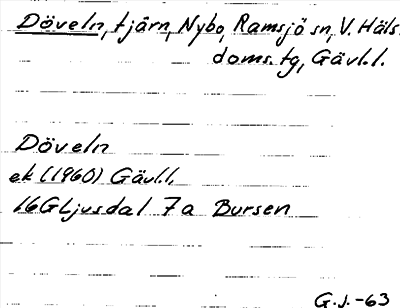 Döveln, tjärn, Nybo, Ramsjö sn, V. Häls.
doms. tg, Gävl.l.
Döveln
ek (1960) Gävl.l.
16G Ljusdal 7a Bursen
G.J.-63